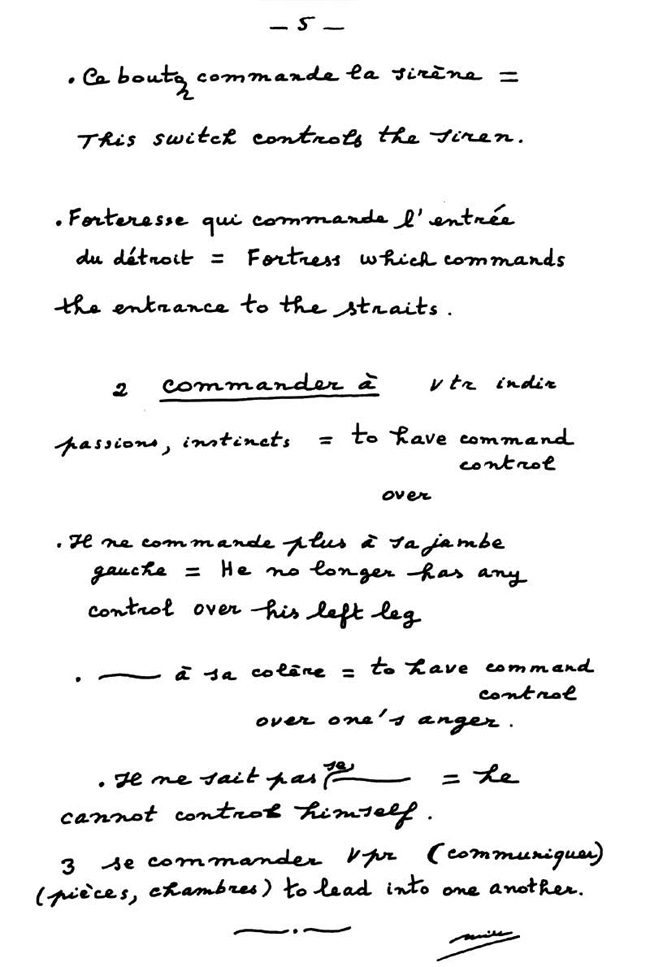 — 5 —
. Ce bouton commande la sirène =
This switch controls the siren.
. Forteresse qui commande l'entrée
du détroit = Fortress which commands
the entrance to the straits.
2 commander à vtr indir
passions, instincts = to have command
control
over
. Il ne commande plus à sa jambe
gauche = He no longer has any
control over his left leg
. — à sa colère = to have command
control
over one's anger.
. Il ne sait pas se — = he
cannot control himself.
3 se commander vpr (communiquer)
(pièces, chambres) to lead into one another.